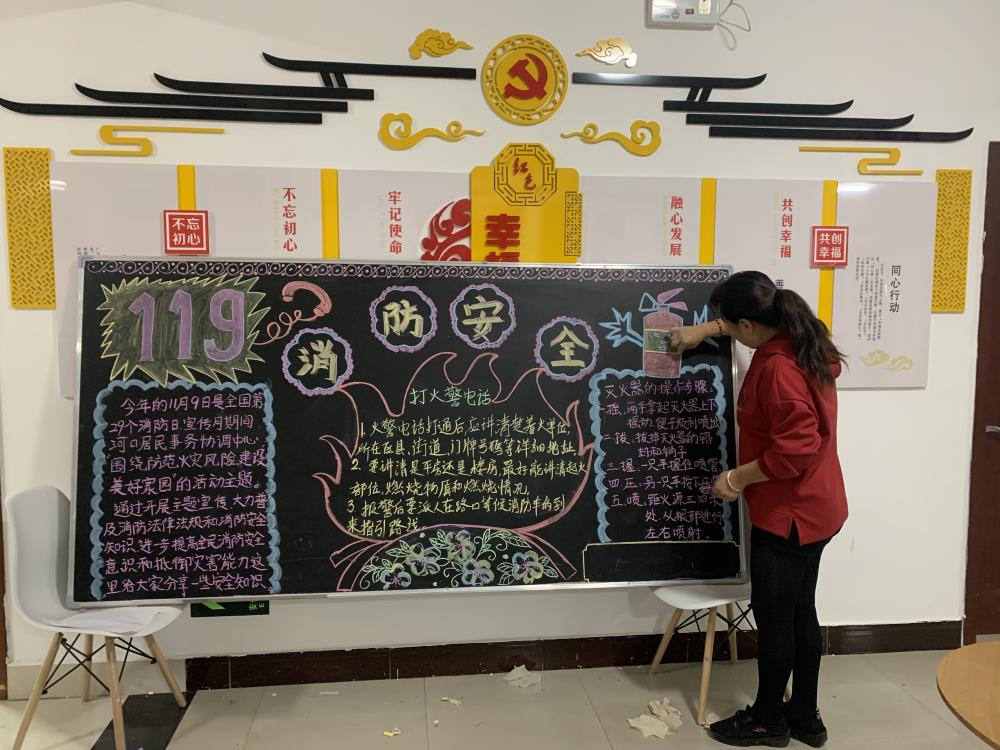 红色
幸福
不忘初心
牢记使命
融心发展
共创幸福
同心行动
不忘
初心
共创
幸福
善
119
消防安全
今年的11月9日是全国第
29个消防日,宣传月期间
河口居民事务协调中心
"围绕防范火灾风险,建设
美好家园"的活动主题。
通过开展主题宣传,大力普
及消防法律法规和消防安全
知识,进一步提高全民消防安全
意识和抵御灾害能力这
里给大家分享一些安全知识
打火警电话
1.火警电话打通后,应讲清楚着火单位,
所在区县、街道、门牌号码等详细地址。
2.要讲清是平房还是楼房,最好能讲清起火
部位,燃烧物质和燃烧情况。
3.报警后要派人在路口等候消防车的到
来指引路线。
灭火器的操作步骤:
一摇,两手拿起灭火器上下
摇动,便于顺利喷出
二、拔,拔掉灭火器的铅
封和销子
三、握,一只手握住喷管
四、压,另一只手按下压
五、喷,距火源三四米
处,从根部进行
左右喷射。